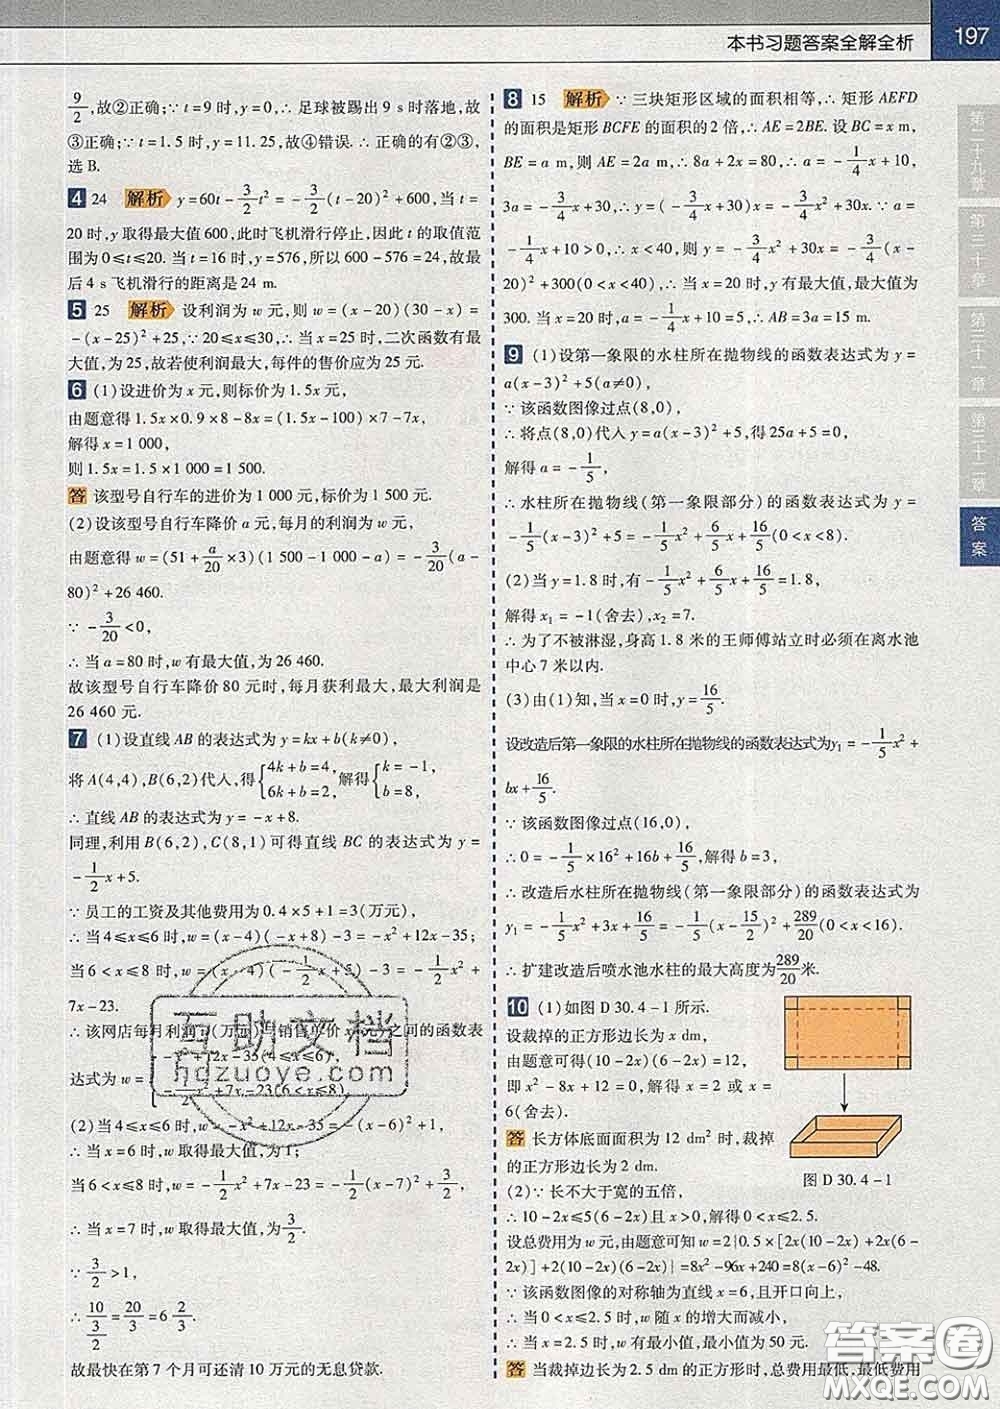 本书习题答案全解全析
197
9/2,故②正确;∵t=9时,y=0,∴足球被踢出9 s时落地,故
③正确;∵t=1.5时,y=11.25,故④错误.∴正确的有②③,
选B.
4 24 解析 y=60t-3/2t²=-3/2(t-20)²+600,当t=
20时,y取得最大值600,此时飞机滑行停止,因此t的取值范
围为0≤t≤20.当t=16时,y=576,所以600-576=24,故最
后4 s飞机滑行的距离是24 m.
5 25 解析 设利润为w元,则w=(x-20)(30-x)=
-(x-25)²+25,∵20≤x≤30,∴当x=25时,二次函数有最
大值,为25,故若使利润最大,每件的售价应为25元.
6 (1)设进价为x元,则标价为1.5x元,
由题意得1.5x×0.9×8-8x=(1.5x-100)×7-7x,
解得x=1 000,
则1.5x=1.5×1 000=1 500.
答 该型号自行车的进价为1 000元,标价为1 500元.
(2)设该型号自行车降价a元,每月的利润为w元,
由题意得w=(51+a/20×3)(1 500-1 000-a)=-3/20(a-
80)²+26 460.
∵-3/20<0,
∴当a=80时,w有最大值,为26 460.
故该型号自行车降价80元时,每月获利最大,最大利润是
26 460元.
7 (1)设直线AB的表达式为y=kx+b(k≠0),
将A(4,4),B(6,2)代入,得{4k+b=4, 6k+b=2, 解得{k=-1, b=8,
∴直线AB的表达式为y=-x+8.
同理,利用B(6,2),C(8,1)可得直线BC的表达式为y=
-1/2x+5.
∵员工的工资及其他费用为0.4×5+1=3(万元),
∴当4≤x≤6时,w=(x-4)(-x+8)-3=-x²+12x-35;
当6<x≤8时,w=(x-4)(-1/2x+5)-3=-1/2x²+
7x-23.
∴该网店每月利润w(万元)与销售单价x(元)之间的函数表
达式为w={-x²+12x-35(4≤x≤6), -1/2x²+7x-23(6<x≤8).
(2)当4≤x≤6时,w=-x²+12x-35=-(x-6)²+1,
∴当x=6时,w取得最大值,为1.
当6<x≤8时,w=-1/2x²+7x-23=-1/2(x-7)²+3/2,
∴当x=7时,w取得最大值,为3/2.
∵3/2>1,
∴10/(3/2)=20/3=6 2/3,
故最快在第7个月可还清10万元的无息贷款.
8 15 解析 ∵三块矩形区域的面积相等,∴矩形AEFD
的面积是矩形BCFE的面积的2倍,∴AE=2BE.设BC=x m,
BE=a m,则AE=2a m,∴8a+2x=80,∴a=-1/4x+10,
3a=-3/4x+30,∴y=(-3/4x+30)x=-3/4x²+30x.∵a=
-1/4x+10>0,∴x<40,则y=-3/4x²+30x=-3/4(x-
20)²+300(0<x<40),∴当x=20时,y有最大值,最大值为
300.当x=20时,a=-1/4x+10=5,∴AB=3a=15 m.
9 (1)设第一象限的水柱所在抛物线的函数表达式为y=
a(x-3)²+5(a≠0),
∵该函数图像过点(8,0),
∴将点(8,0)代入y=a(x-3)²+5,得25a+5=0,
解得a=-1/5,
∴水柱所在抛物线(第一象限部分)的函数表达式为y=
-1/5(x-3)²+5=-1/5x²+6/5x+16/5(0<x<8).
(2)当y=1.8时,有-1/5x²+6/5x+16/5=1.8,
解得x₁=-1(舍去),x₂=7.
∴为了不被淋湿,身高1.8米的王师傅站立时必须在离水池
中心7米以内.
(3)由(1)知,当x=0时,y=16/5.
设改造后第一象限的水柱所在抛物线的函数表达式为y₁=-1/5x²+
bx+16/5.
∵该函数图像过点(16,0),
∴0=-1/5×16²+16b+16/5,解得b=3,
∴改造后水柱所在抛物线(第一象限部分)的函数表达式为
y₁=-1/5x²+3x+16/5=-1/5(x-15/2)²+289/20(0<x<16).
∴扩建改造后喷水池水柱的最大高度为289/20米.
10 (1)如图D 30.4-1所示.
设裁掉的正方形边长为x dm,
由题意可得(10-2x)(6-2x)=12,
即x²-8x+12=0,解得x=2或x=
6(舍去).
答 长方体底面面积为12 dm²时,裁掉
的正方形边长为2 dm.
图D 30.4-1
(2)∵长不大于宽的五倍,
∴10-2x≤5(6-2x)且x>0,解得0<x≤2.5.
设总费用为w元,由题意可知w=2{0.5×[2x(10-2x)+2x(6-
2x)]+2(10-2x)(6-2x)}=8x²-96x+240=8(x-6)²-48.
∵该函数图像的对称轴为直线x=6,且开口向上,
∴当0<x≤2.5时,w随x的增大而减小,
∴当x=2.5时,w有最小值,最小值为50元.
答 当裁掉边长为2.5 dm的正方形时,总费用最低,最低费用
第二十九章
第三十章
第三十一章
第三十二章
答案
互助文档
hdzuoye.com
答案圈
MXQE.COM